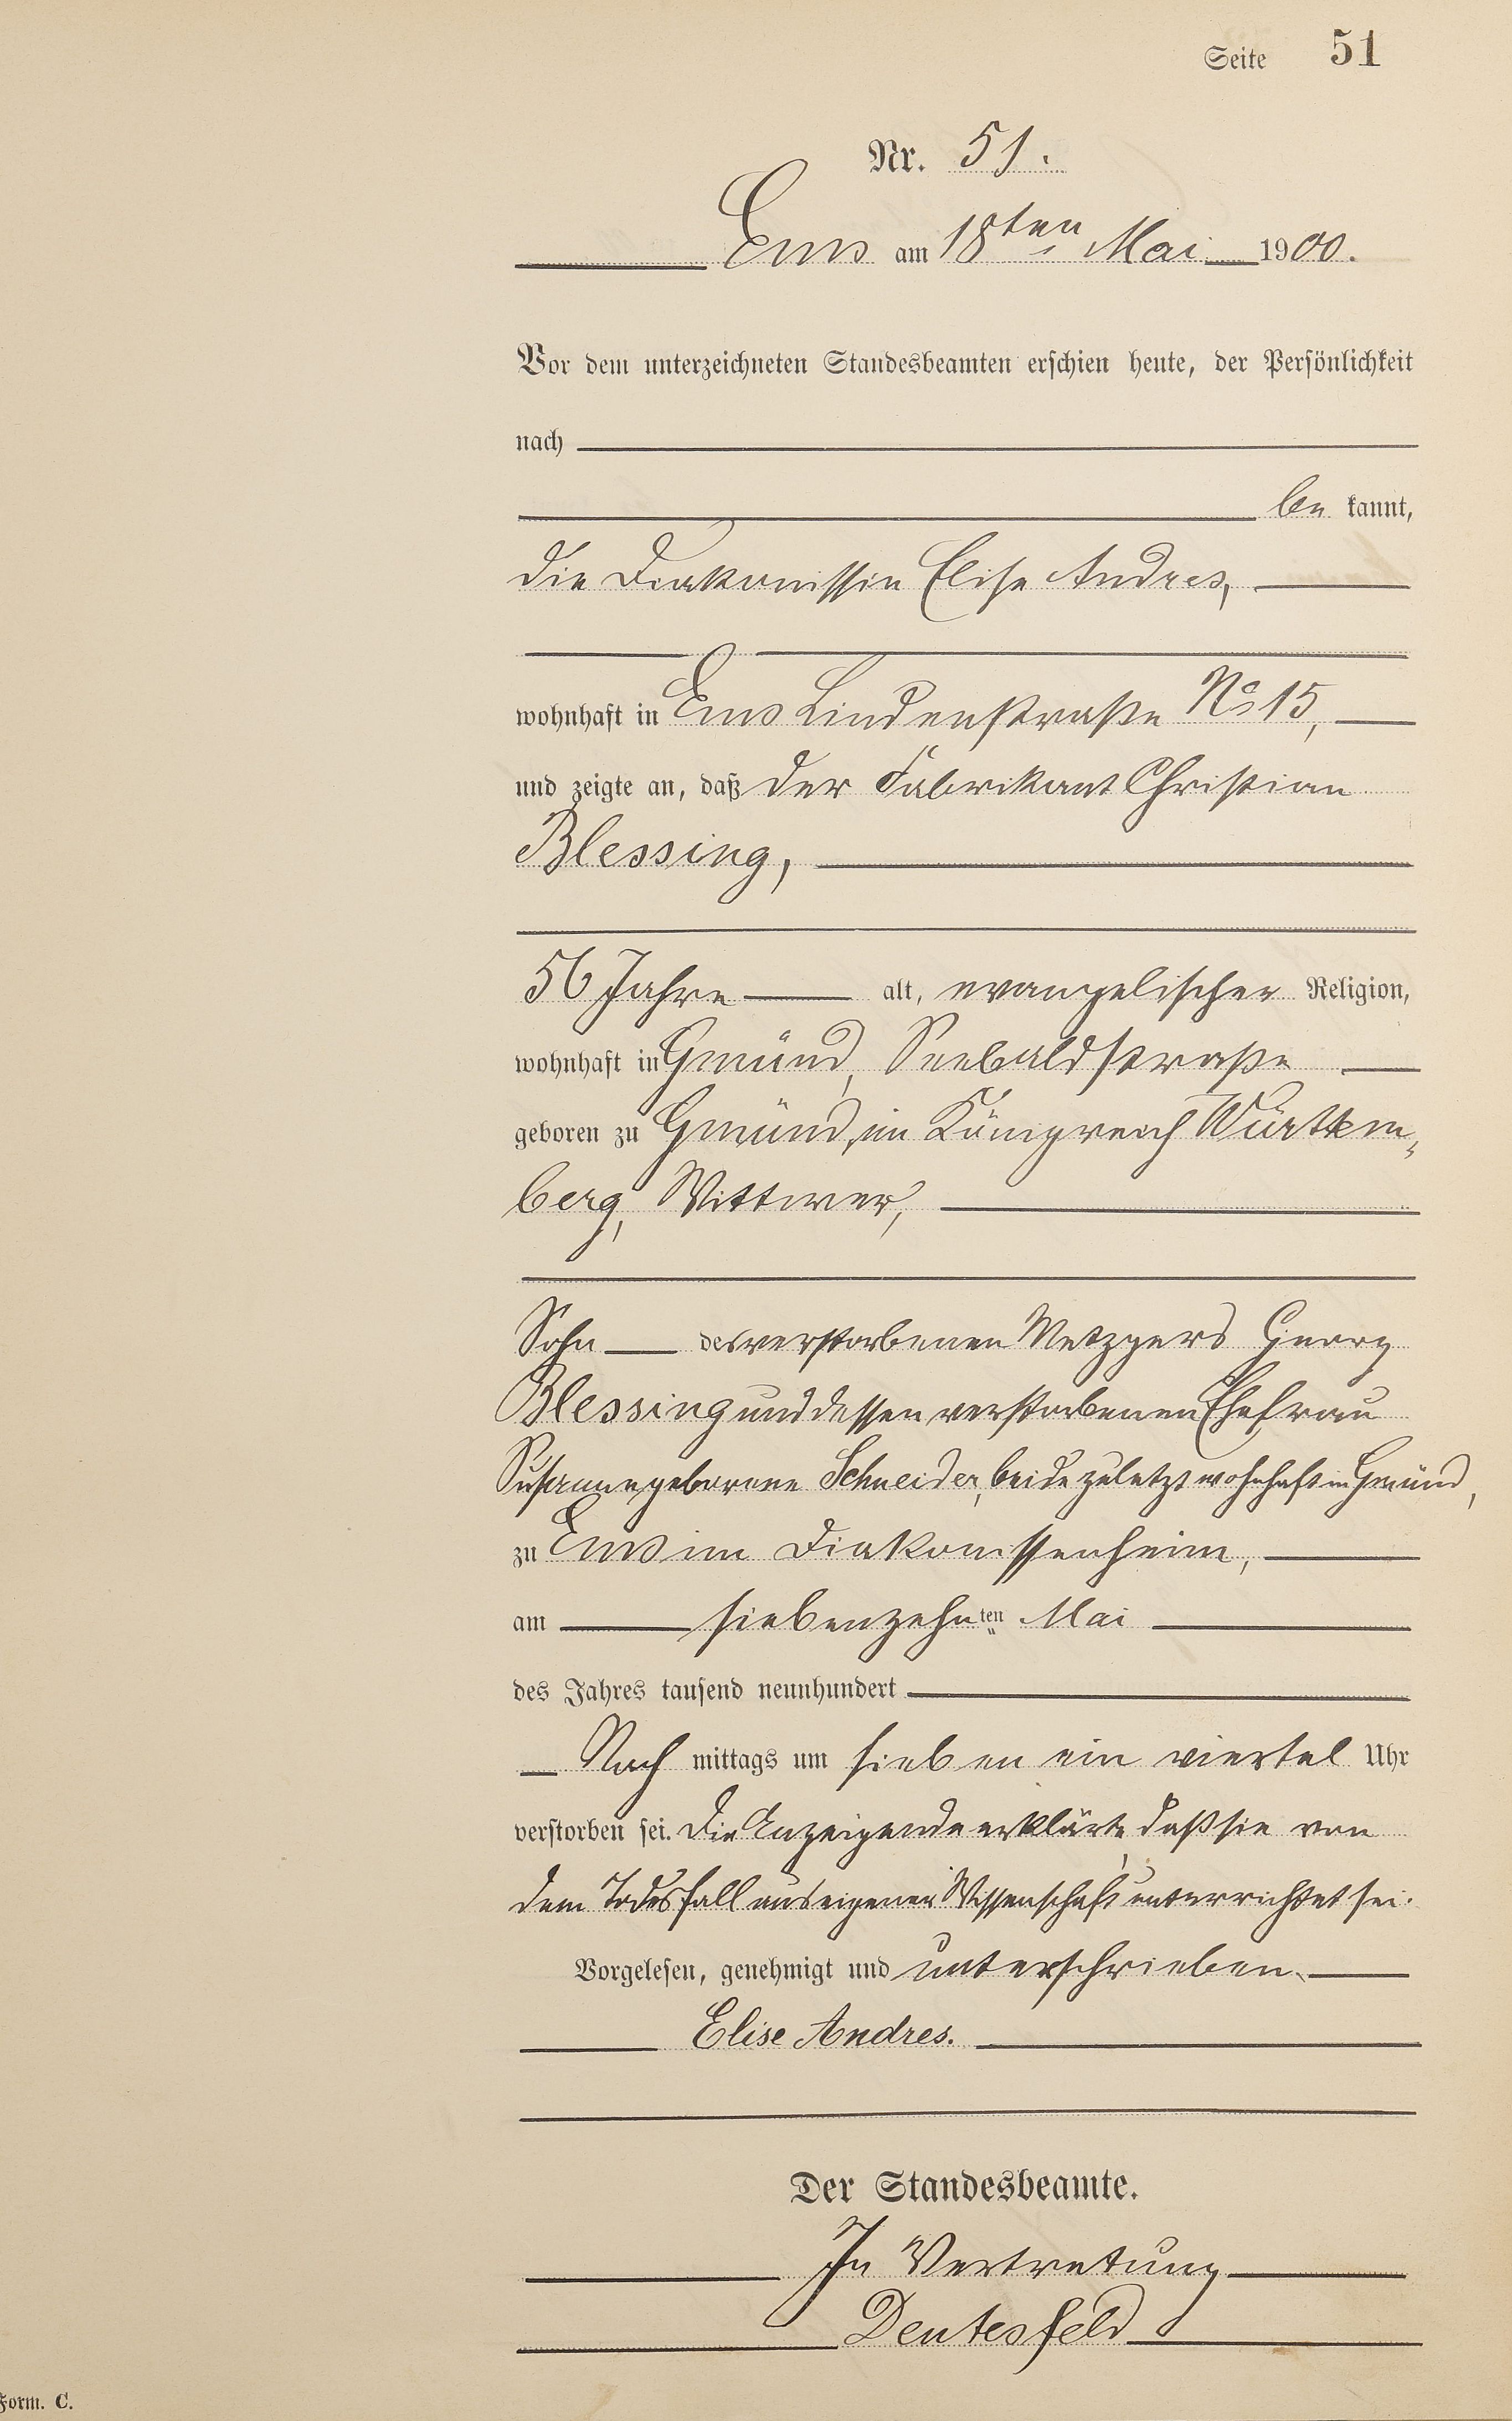 Seite 51
Nr. 51.
Ems am 18ten Mai 1900.
Vor dem unterzeichneten Standesbeamten erschien heute, der Persönlichkeit
nach
be kannt,
die Diakonissin Elise Andres,
wohnhaft in Ems Lindenstraße No 15,
und zeigte an, daß der Fabrikant Christian
Blessing,
56 Jahre alt, evangelischer Religion,
wohnhaft in Gmünd, Seebaldstraße
geboren zu Gmünd, im Königreich Württem-
berg, Wittwer,
Sohn des verstorbenen Metzgers Georg
Blessing und dessen verstorbenen Ehefrau
Susanne geborene Schneider, beide zuletzt wohnhaft in Gmünd,
zu Ems im Diakonissenheim,
am siebenzehnten Mai
des Jahres tausend neunhundert
Nach mittags um sieben ein viertel Uhr
verstorben sei. Die Anzeigende erklärte, daß sie von
dem Todesfall aus eigener Wissenschaft unterrichtet sei.
Vorgelesen, genehmigt und unterschrieben.
Elise Andres.
Der Standesbeamte.
In Vertretung
Deutesfeld
Form. C.